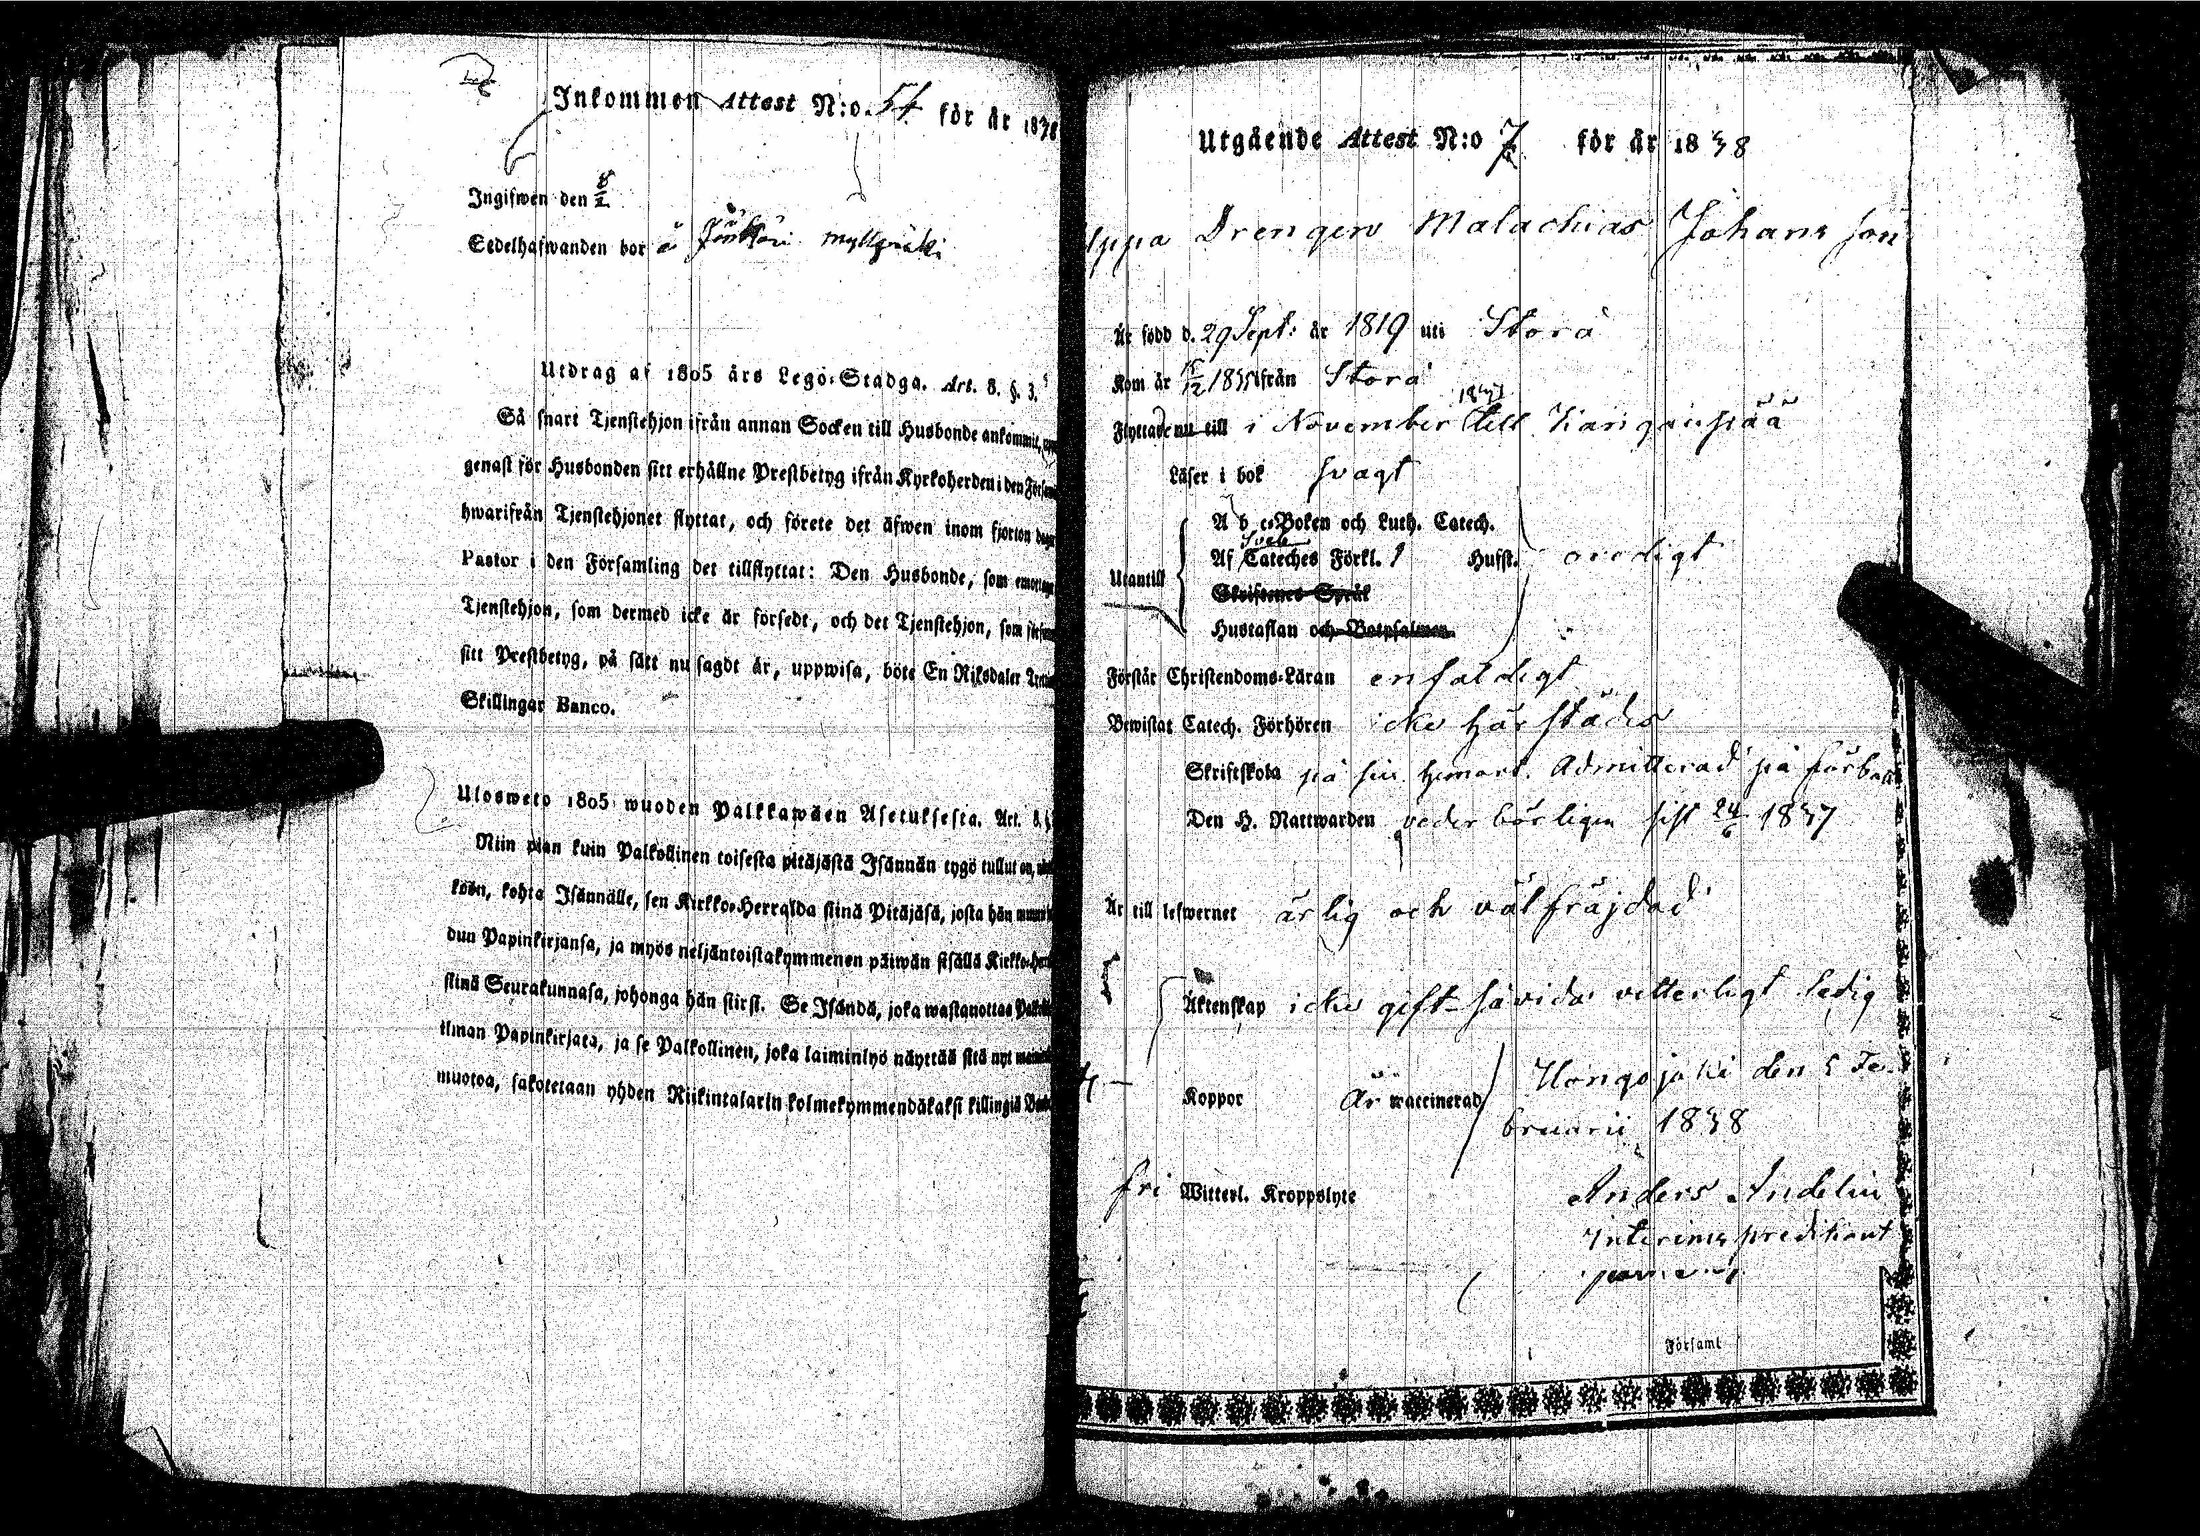 Inkommen Attest N:o. 54 för år 1838
Ingifwen den 8/2
Sedelhafwanden bor å
Utdrag af 1805 års Lego-Stadga. Art. 8. §. 3.
Så snart Tjenstehjon ifrån annan Socken till Husbonde ankommit,
genast för Husbonden sitt erhållne Prestbetyg ifrån Kyrkoherden i den
hwarifrån Tjenstehjonet flyttat, och förete det äfwen inom fjorton
Pastor i den Församling det tillflyttat: Den Husbonde, som
Tjenstehjon, som dermed icke är försedt, och det Tjenstehjon, som
sitt Prestbetyg, på sätt nu sagdt är, uppwisa, böte En Riksdaler
Skillingar Banco.
Ulosweto 1805 wuoden Palkkawäen Asetuksesta. Art. 8. §
Niin pian kuin Palkollinen toisesta pitäjästä Isännän tygö tullut on,
köön, kohta Isännälle, sen Kirkko-Herralda siinä Pitäjäsä, josta hän
dun Papinkirjansa, ja myös neljäntoistakymmenen päiwän sisällä
siinä Seurakunnasa, johonga hän siirsi. Se Isändä, joka wastanottaa
ilman Papinkirjata, ja se Palkollinen, joka laiminlyö näyttää sitä nyt
muotoa, sakotetaan yhden Riikintalarin kolmekymmendäkaksi killingiä
Utgående Attest N:o 7 för år 1838
Drengen Malachias Johansson
Är född d. 29 Sept: år 1819 uti Storå
Kom år 1835 ifrån Storå
1837
Flyttade nu till i November till Kanganpää
Läser i bok svagt
A b c-Boken och Luth. Catech.
Sveb
Utantill Af Cateches Förkl. Husft. oredigt
Skriftenes Språk
Hustaflan och Botpsalmen
Förstår Christendoms-Läran enfaldigt
Bewistat Catech. Förhören icke härstädes
Skriftskola på sin hemort. Admitterad på
Den H. Nattwarden vederbörligen sist 24/6 1837
Är till lefwernet ärlig och välfräjdad
Äktenskap icke gift såvida vetterligt ledig
Koppor Är waccinerad
Hongojoki den 5 Fe
bruarii 1838
fri Witterl. Kroppslyte
Anders Andelin
Interims predikant
Församl